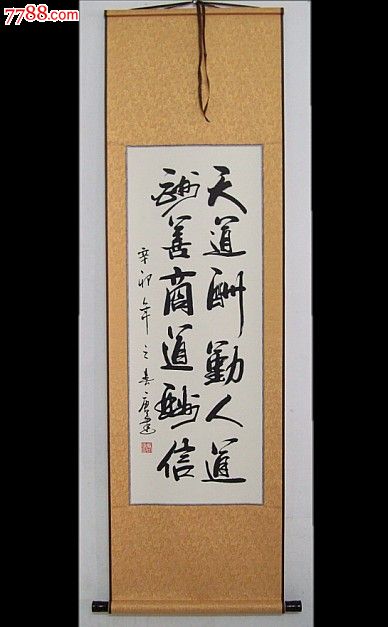 7788.com
天道酬勤人道
酬善商道酬信
辛卯年之春